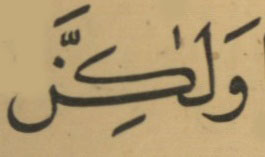 وَلٰكِنَّ